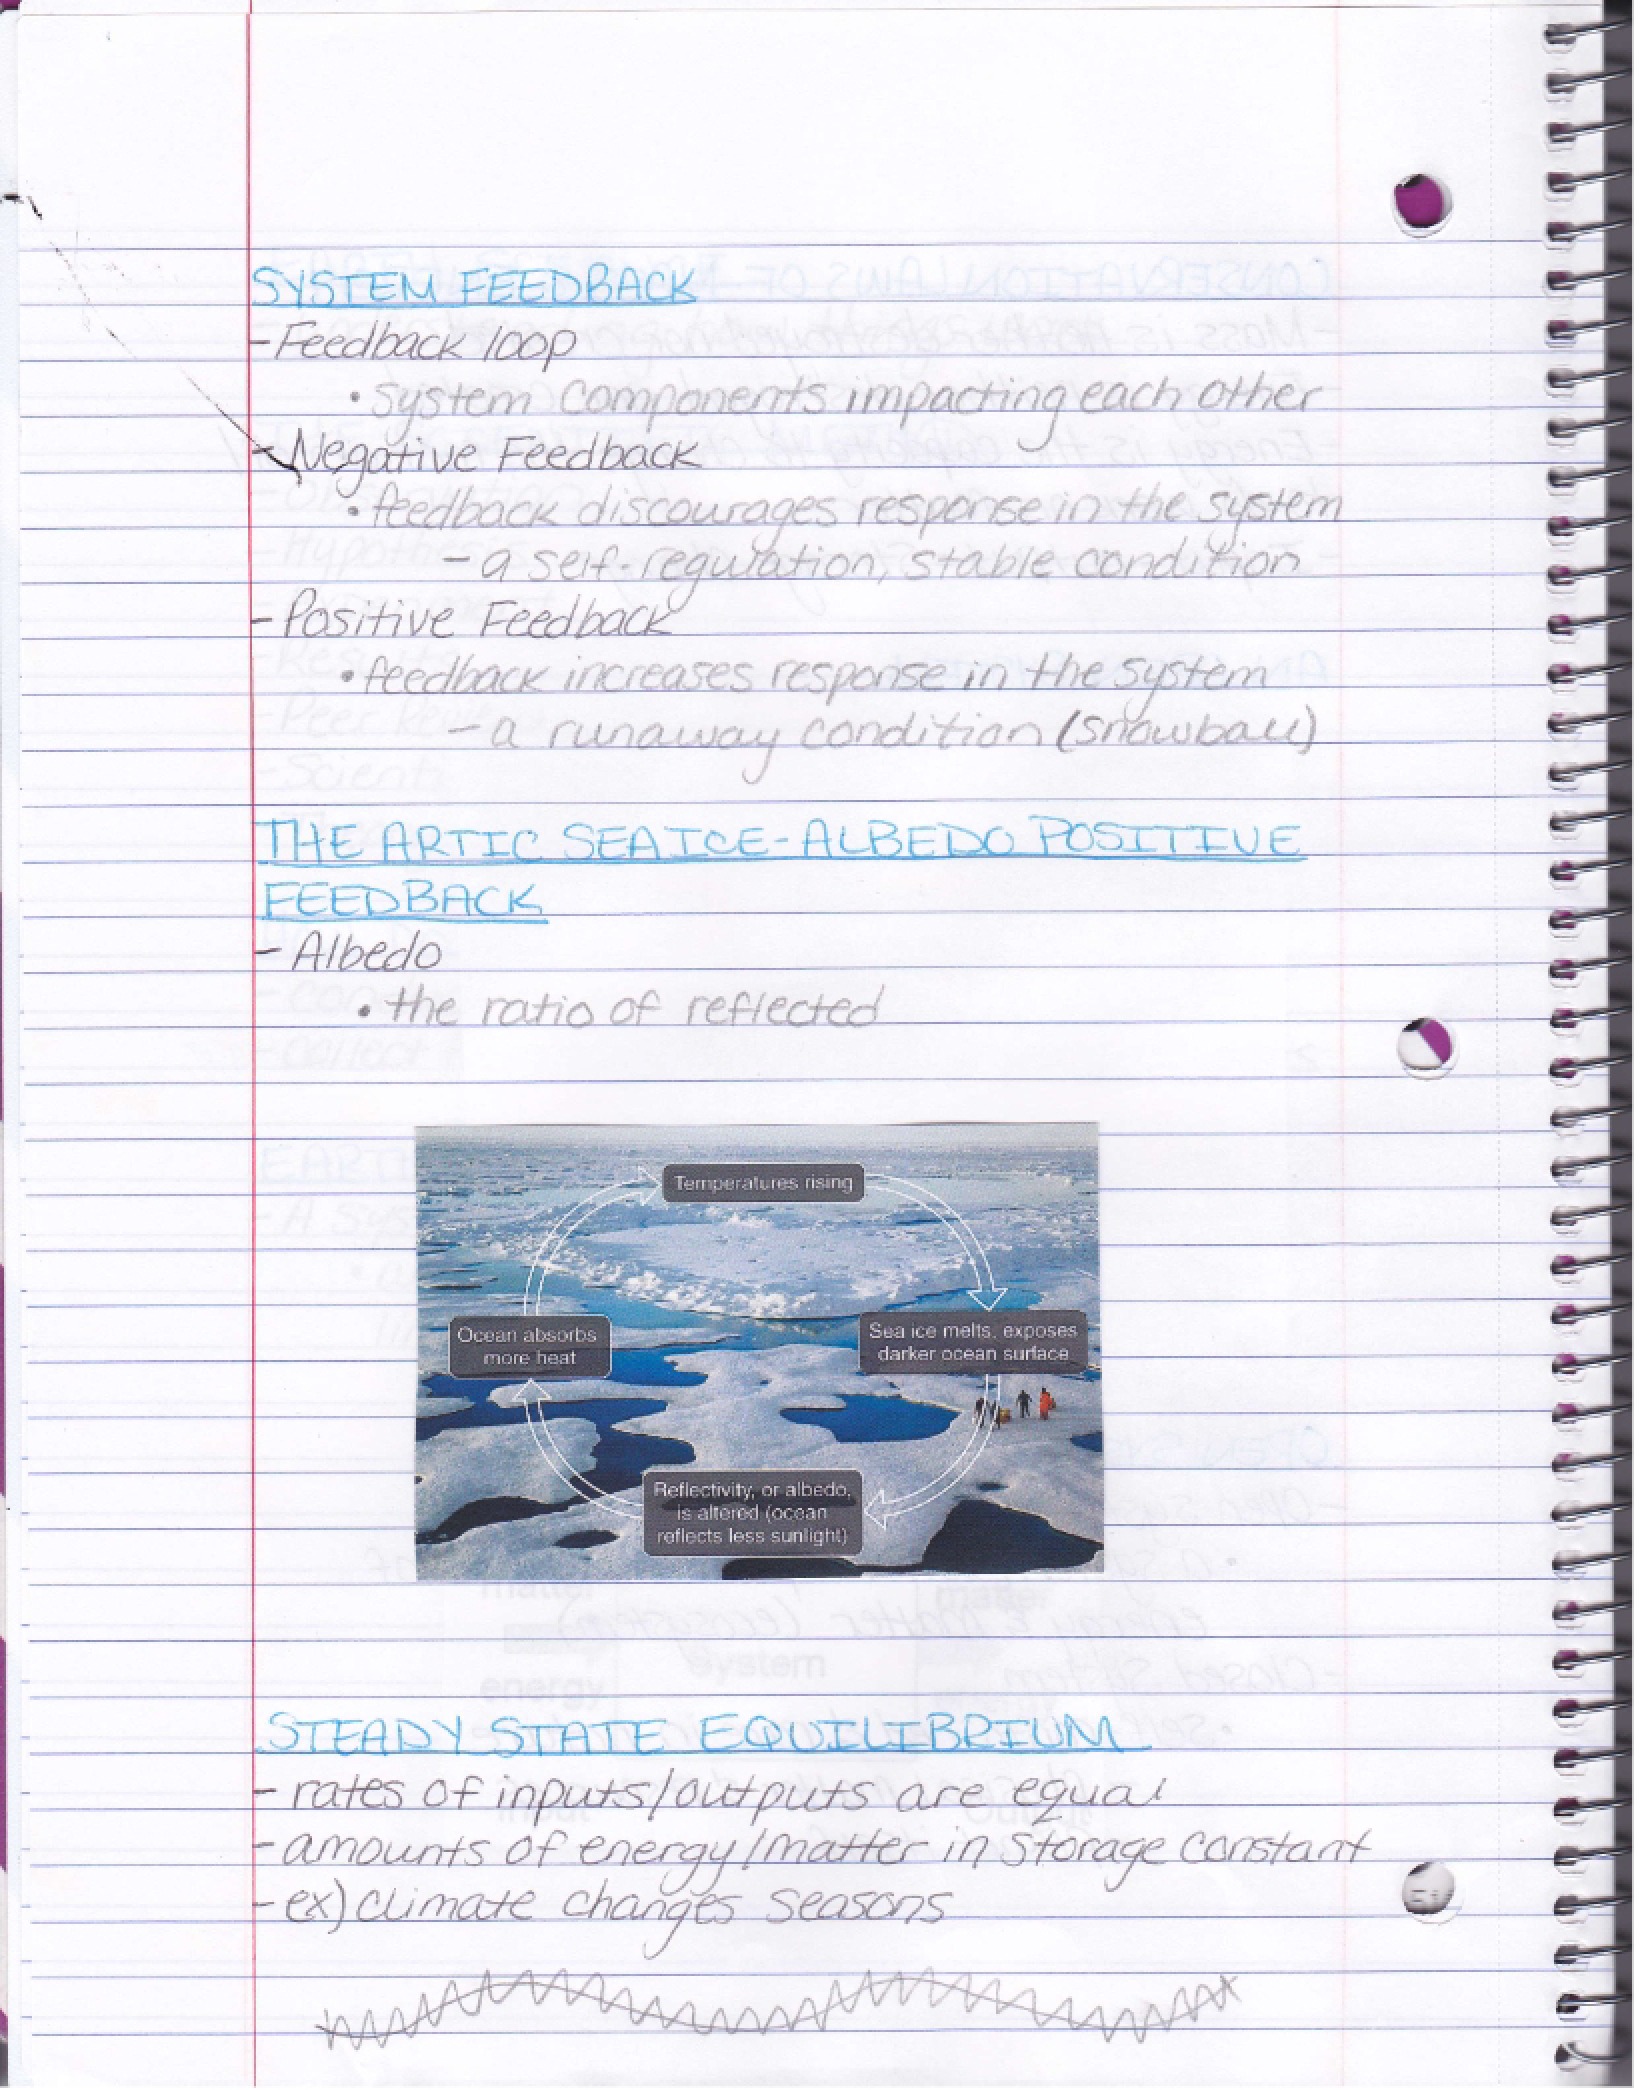 SYSTEM FEEDBACK
- Feedback loop
• system components impacting each other
- Negative Feedback
• feedback discourages response in the system
- a self-regulation, stable condition
- Positive Feedback
• feedback increases response in the system
- a runaway condition (snowball)
THE ARTIC SEA ICE-ALBEDO POSITIVE
FEEDBACK
- Albedo
• the ratio of reflected
Temperatures rising
Sea ice melts, exposes
darker ocean surface
Reflectivity, or albedo,
is altered (ocean
reflects less sunlight)
Ocean absorbs
more heat
STEADY STATE EQUILIBRIUM
- rates of inputs/outputs are equal
- amounts of energy/matter in storage constant
- ex) climate changes seasons